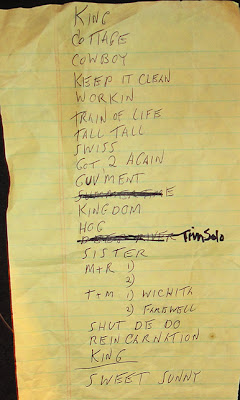 KING
COTTAGE
COWBOY
KEEP IT CLEAN
WORKIN
TRAIN OF LIFE
TALL TALL
SWISS
GOT 2 AGAIN
GUVMENT
SUMMERTIME
KINGDOM
HOG
DEEP RIVER Tim Solo
SISTER
M+R 1)
2)
T+M 1) WICHITA
2) FAREWELL
SHUT DE DO
REINCARNATION
KING
SWEET SUNNY